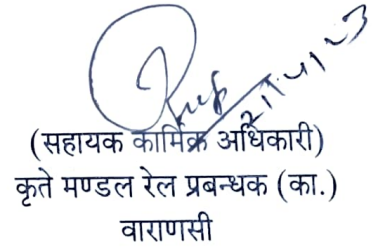 (सहायक कार्मिक अधिकारी)
कृते मण्डल रेल प्रबन्धक (का.)
वाराणसी